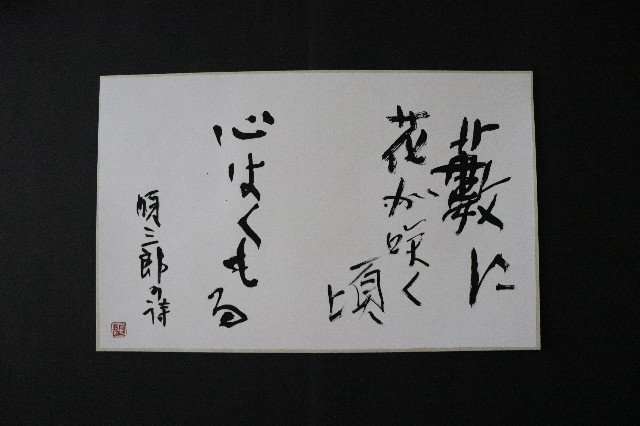 藪に
花が咲く
頃
心はくもる
順三郎の詩